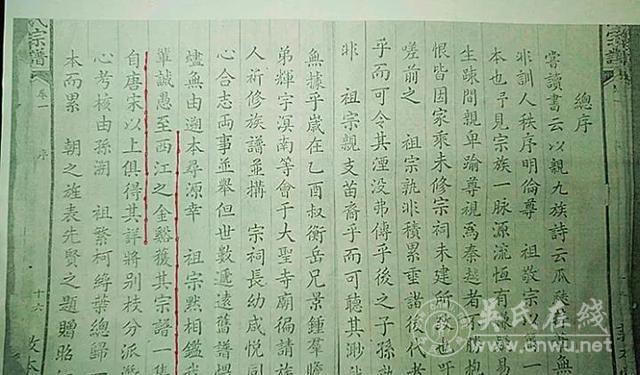 總序
嘗讀書云以親九族詩云瓜瓞
非訓人秩序明倫尊 祖敬宗以
本也予見宗族一脉源流恒有
生疎間親卑踰尊視為秦越者不
恨皆因家乘未修宗祠未建所致也
嗟前之 祖宗孰非積累垂諸後代者
乎而可令其湮没弗傳乎後之子孫孰
非 祖宗親支苗裔乎而可聽其渺
無據乎歲在乙酉叔衡岳兄景鍾羣
弟輝宇溟南等會于大聖寺廟徧請族
人祈修族譜並搆 宗祠長幼咸悦同
心合志兩事並舉但世數遞遠舊譜
燼無由遡本尋源幸 祖宗黙相鑑
輩誠愚至西江之金谿獲其宗譜一
自唐宋以上俱得其詳將别枝分派
心考核由孫溯 祖繁柯縟葉總歸一
本而累 朝之旌表先賢之題贈
宗譜
卷一
序
十六
敦本
吴氏在线
www.cnwu.net